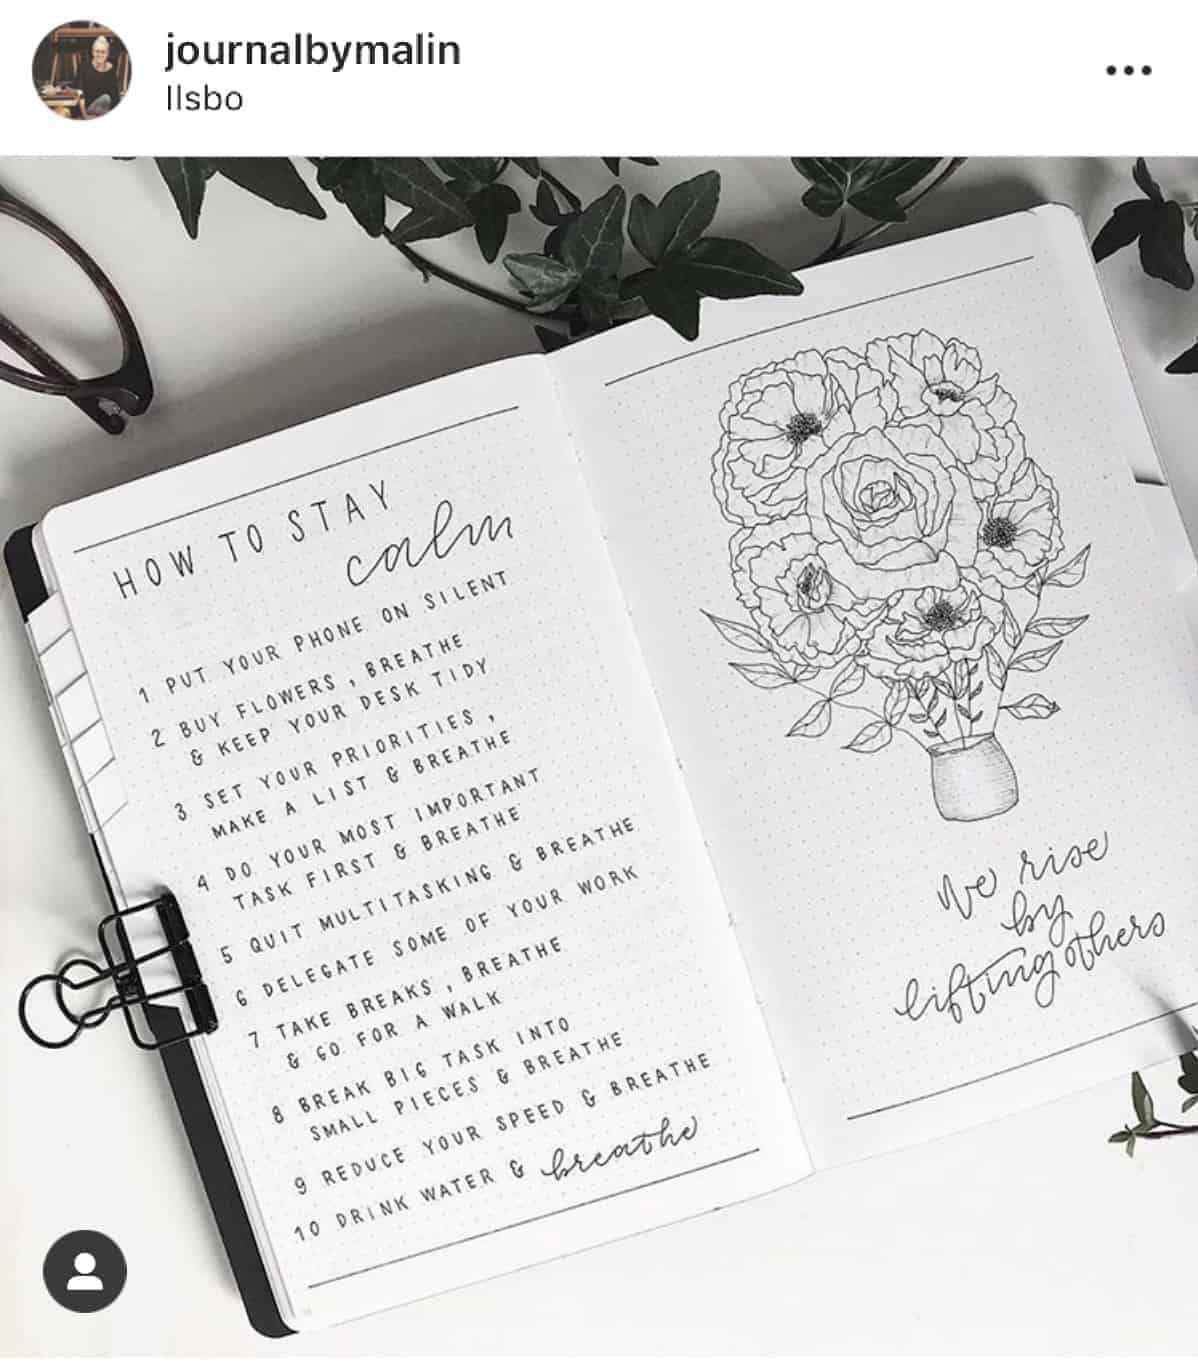 journalbymalin
Ilsbo
HOW TO STAY
calm
1 PUT YOUR PHONE ON SILENT
2 BUY FLOWERS, BREATHE
& KEEP YOUR DESK TIDY
3 SET YOUR PRIORITIES,
MAKE A LIST & BREATHE
4 DO YOUR MOST IMPORTANT
TASK FIRST & BREATHE
5 QUIT MULTITASKING & BREATHE
6 DELEGATE SOME OF YOUR WORK
7 TAKE BREAKS, BREATHE
& GO FOR A WALK
8 BREAK BIG TASK INTO
SMALL PIECES & BREATHE
9 REDUCE YOUR SPEED & BREATHE
10 DRINK WATER & breathe
We rise
by
lifting others